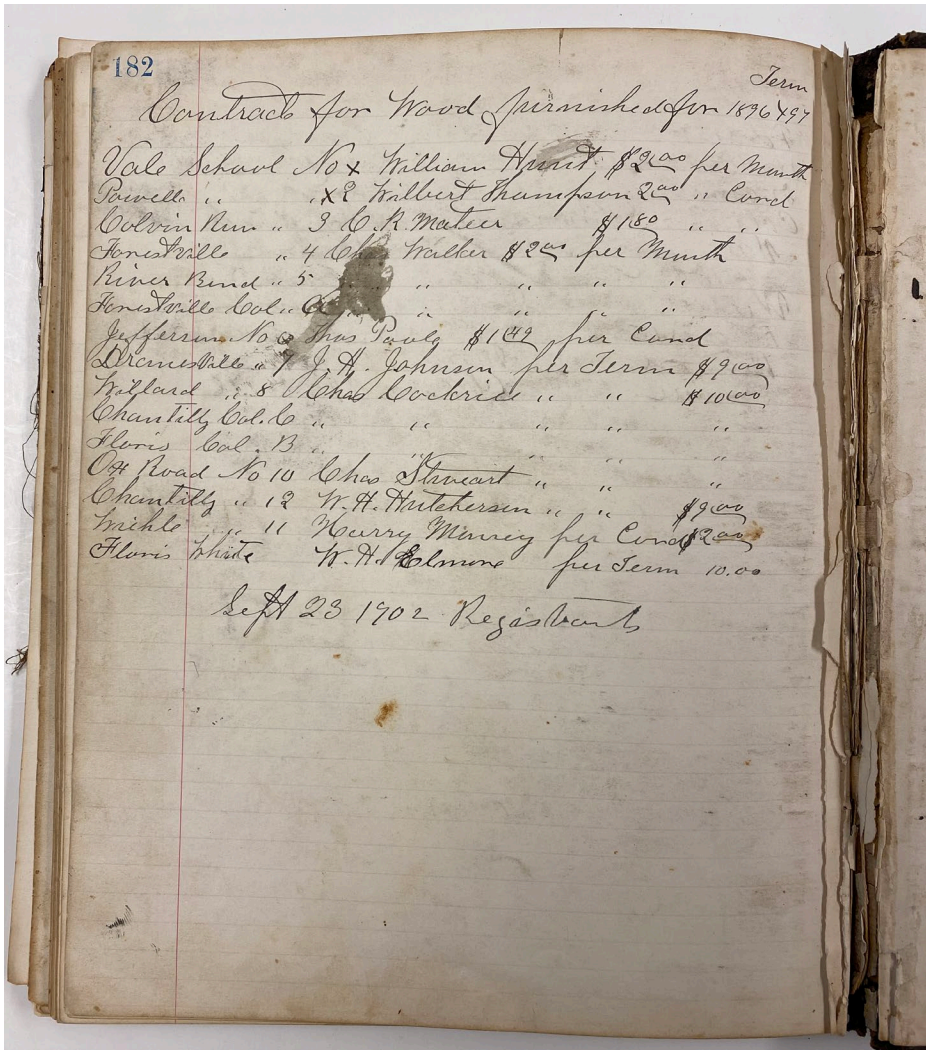 182
Term
Contracts for Wood furnished for 1896 & 97
Vale School No x William Hunt $2.00 per Month
Powells " " x2 Wilbert Thompson 2.00 " Cord
Colvin Run " 3 C. R. Mateer $1.80 " "
Forestville " 4 Chas Walker $2.00 per Month
River Bend " 5 " " " "
Forestville Col. " A " " " "
Jefferson No 6 Thos Poole $1.49 per Cord
Dranesville " 7 J. H. Johnson per Term $9.00
Willard " 8 Chas Cockrill " " $10.00
Chantilly Col. C " " " " "
Floris Col. B " " " " "
Ox Road No 10 Chas Stweart " " "
Chantilly " 12 W. H. Hutcherson " " $9.00
Wiehle " 11 Harry per Cord $2.00
Floris White W. H. Elmore per Term 10.00
Sept 23 1902 Registrants